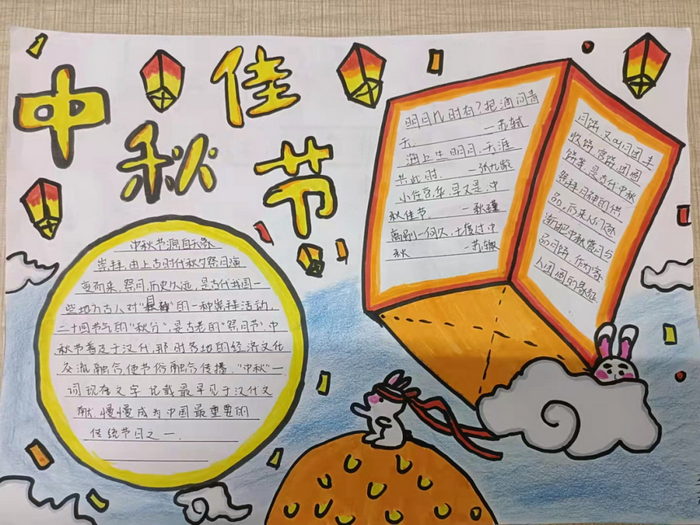 中秋佳节
中秋节源自天象
崇拜,由上古时代秋夕祭月演
变而来。祭月,历史久远,是古代我国一
些地方古人对"月神"的一种崇拜活动,
二十四节气的"秋分",是古老的"祭月节"中
秋节普及于汉代,那时各地的经济文化
交流融合使节俗融合传播."中秋"一
词现存文字记载最早见于汉代文
献,慢慢成为中国最重要的
传统节日之一.
明月几时有?把酒问青
天.—苏轼
海上生明月,天涯
共此时.—张九龄
小住京华,早又是,中
秋佳节—秋瑾
离别一何久,七度过中
秋—苏辙
月饼又叫月团、丰
收饼、宫饼、团圆
饼等,是古代中秋
祭拜月神的供
品.后来人们逐
渐把中秋赏月与
品月饼,作为家
人团圆的象征